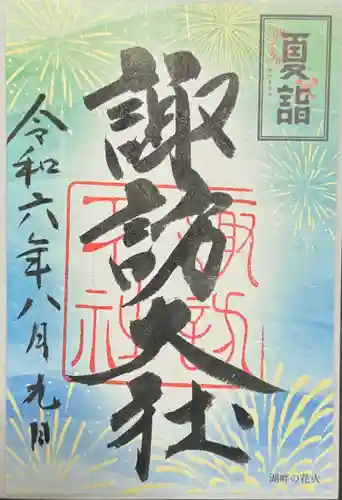 夏詣
諏訪大社
令和六年八月九日
諏訪大社
湖畔の花火